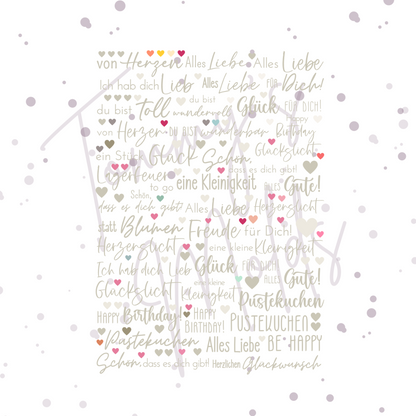 von Herzen Alles Liebe Alles Liebe
Ich hab dich Lieb Alles Liebe FÜR Dich!
du bist Toll du bist wundervoll Glück FÜR DICH!
von Herzen DU BIST wunderbar Birthday HAPPY
ein Stück Glück Schön, Glückslicht
Lagerfeuer dass es dich gibt! Alles
to go eine Kleinigkeit Gute!
Schön,
dass es dich gibt! Alles Liebe Herzerlicht
statt Blumen Freude für Dich!
Herzerlicht eine kleine Kleinigkeit
Ich hab dich Lieb Glück ALLES Gute!
Glückslicht kleine Kleinigkeit Pustekuchen
HAPPY Birthday! HAPPY BIRTHDAY! PUSTEKUCHEN
Pustekuchen Alles Liebe BE HAPPY
Schön, dass es dich gibt! Herzlichen Glückwunsch